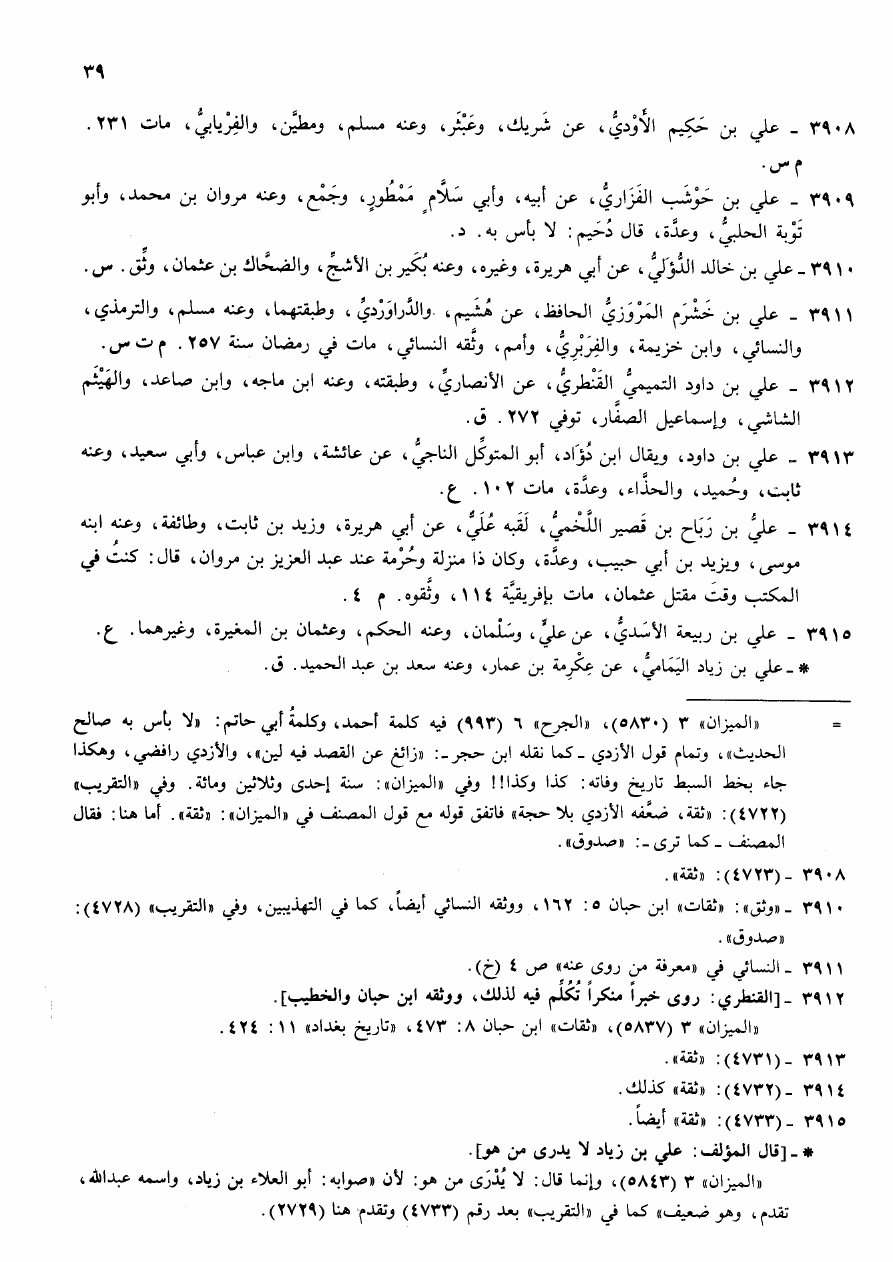 ٣٩
٣٩٠٨ - علي بن حَكِيم الأَوْديُّ، عن شَريك، وعَبْثَر، وعنه مسلم، ومطيَّن، والفِرْيابيُّ، مات ٢٣١.
م س.
٣٩٠٩ - علي بن حَوْشَب الفَزَاريُّ، عن أبيه، وأبي سَلَّامٍ مَمْطُورٍ، وجَمْع، وعنه مروان بن محمد، وأبو
تَوْبة الحلبيُّ، وعدَّة، قال دُحَيم: لا بأس به. د.
٣٩١٠ - علي بن خالد الدُّؤَليُّ، عن أبي هريرة، وغيره، وعنه بُكَير بن الأشجِّ، والضحَّاك بن عثمان، وثِّق. س.
٣٩١١ - علي بن خَشْرَم المَرْوَزيُّ الحافظ، عن هُشَيم، والدَّراوَرْديِّ، وطبقتهما، وعنه مسلم، والترمذي،
والنسائي، وابن خزيمة، والفِرَبْرِيُّ، وأمم، وثَّقه النسائي، مات في رمضان سنة ٢٥٧. م ت س.
٣٩١٢ - علي بن داود التميميُّ القَنْطريُّ، عن الأنصاريِّ، وطبقته، وعنه ابن ماجه، وابن صاعد، والهَيْثَم
الشاشي، وإسماعيل الصفَّار، توفي ٢٧٢. ق.
٣٩١٣ - علي بن داود، ويقال ابن دُؤَاد، أبو المتوكِّل الناجيُّ، عن عائشة، وابن عباس، وأبي سعيد، وعنه
ثابت، وحُميد، والحذَّاء، وعدَّة، مات ١٠٢. ع.
٣٩١٤ - عليُّ بن رَبَاح بن قَصير اللَّخْميُّ، لَقَبه عُلَيٌّ، عن أبي هريرة، وزيد بن ثابت، وطائفة، وعنه ابنه
موسى، ويزيد بن أبي حبيب، وعدَّة، وكان ذا منزلة وحُرْمة عند عبد العزيز بن مروان، قال: كنتُ في
المكتب وقتَ مقتل عثمان، مات بإفريقيَّة ١١٤، وثَّقوه. م ٤.
٣٩١٥ - علي بن ربيعة الأسَديُّ، عن عليٍّ، وسَلْمان، وعنه الحكم، وعثمان بن المغيرة، وغيرهما. ع.
* - علي بن زياد اليَمَاميُّ، عن عِكْرِمة بن عمار، وعنه سعد بن عبد الحميد. ق.
= «الميزان» ٣ (٥٨٣٠)، «الجرح» ٦ (٩٩٣) فيه كلمة أحمد، وكلمةُ أبي حاتم: «لا بأس به صالح
الحديث»، وتمام قول الأزدي - كما نقله ابن حجر -: «زائغ عن القصد فيه لين»، والأزدي رافضي، وهكذا
جاء بخط السبط تاريخ وفاته: كذا وكذا!! وفي «الميزان»: سنة إحدى وثلاثين ومائة. وفي «التقريب»
(٤٧٢٢): «ثقة، ضعَّفه الأزدي بلا حجة» فاتفق قوله مع قول المصنف في «الميزان»: «ثقة». أما هنا: فقال
المصنف - كما ترى -: «صدوق».
٣٩٠٨ - (٤٧٢٣): «ثقة».
٣٩١٠ - «وثق»: «ثقات» ابن حبان ٥: ١٦٢، ووثقه النسائي أيضاً، كما في التهذيبين، وفي «التقريب» (٤٧٢٨):
«صدوق».
٣٩١١ - النسائي في «معرفة من روى عنه» ص ٤ (خ).
٣٩١٢ - [القنطري: روى خبراً منكراً تُكُلِّم فيه لذلك، ووثقه ابن حبان والخطيب].
«الميزان» ٣ (٥٨٣٧)، «ثقات» ابن حبان ٨: ٤٧٣، «تاريخ بغداد» ١١: ٤٢٤.
٣٩١٣ - (٤٧٣١): «ثقة».
٣٩١٤ - (٤٧٣٢): «ثقة» كذلك.
٣٩١٥ - (٤٧٣٣): «ثقة» أيضاً.
* - [قال المؤلف: علي بن زياد لا يدرى من هو].
«الميزان» ٣ (٥٨٤٣)، وإنما قال: لا يُدْرَى من هو: لأن «صوابه: أبو العلاء بن زياد، واسمه عبدالله،
تقدم، وهو ضعيف» كما في «التقريب» بعد رقم (٤٧٣٣) وتقدم هنا (٢٧٢٩).